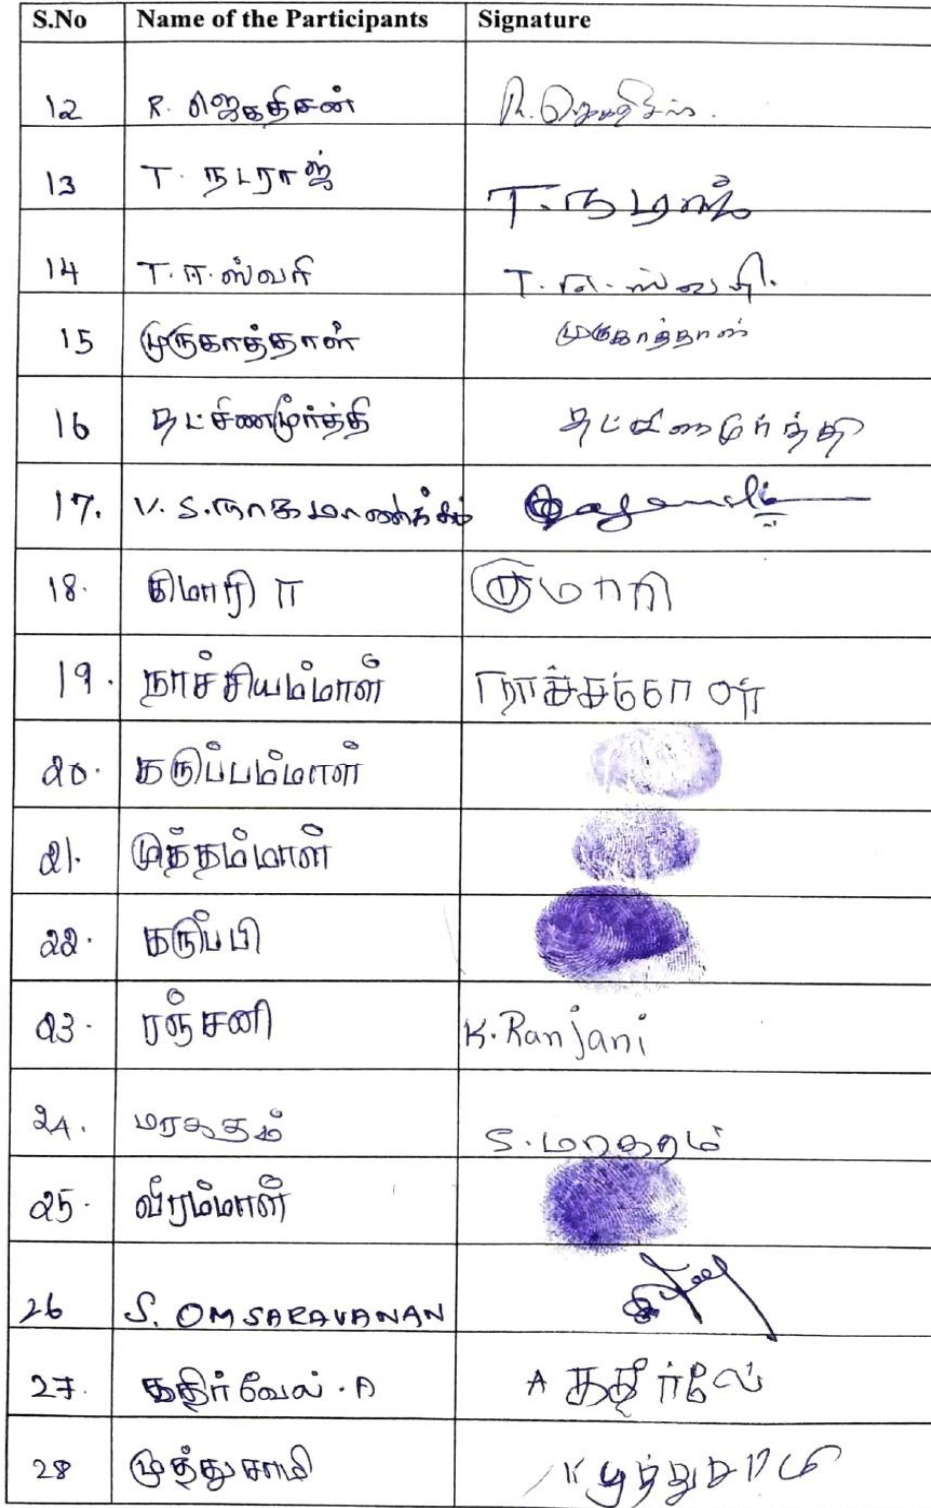 S.No Name of the Participants Signature
12 R. ஜெகதிசன் R. ஜெகதிசன்.
13 T. நடராஜ் T. நடராஜ்
14 T. ஈ.ஸ்வரி T. ஈ.ஸ்வரி.
15 முருகாத்தாள் முருகாத்தாள்
16 தட்சிணமூர்த்தி தட்சிணாமூர்த்தி
17. V. S. நாகமாணிக்கம்
18. குமாரி ரா குமாரி
19. நாச்சியம்மாள்
20. கருப்பம்மாள்
21. முத்தம்மாள்
22. கருப்பி
23. ரஞ்சனி K. Ranjani
24. மரகதம் S. மரகதம்
25. வீரம்மாள்
26 S. OMSARAVANAN
27. கதிர்வேல். A A கதிர்வேல்
28 முத்துசாமி முத்துசாமி